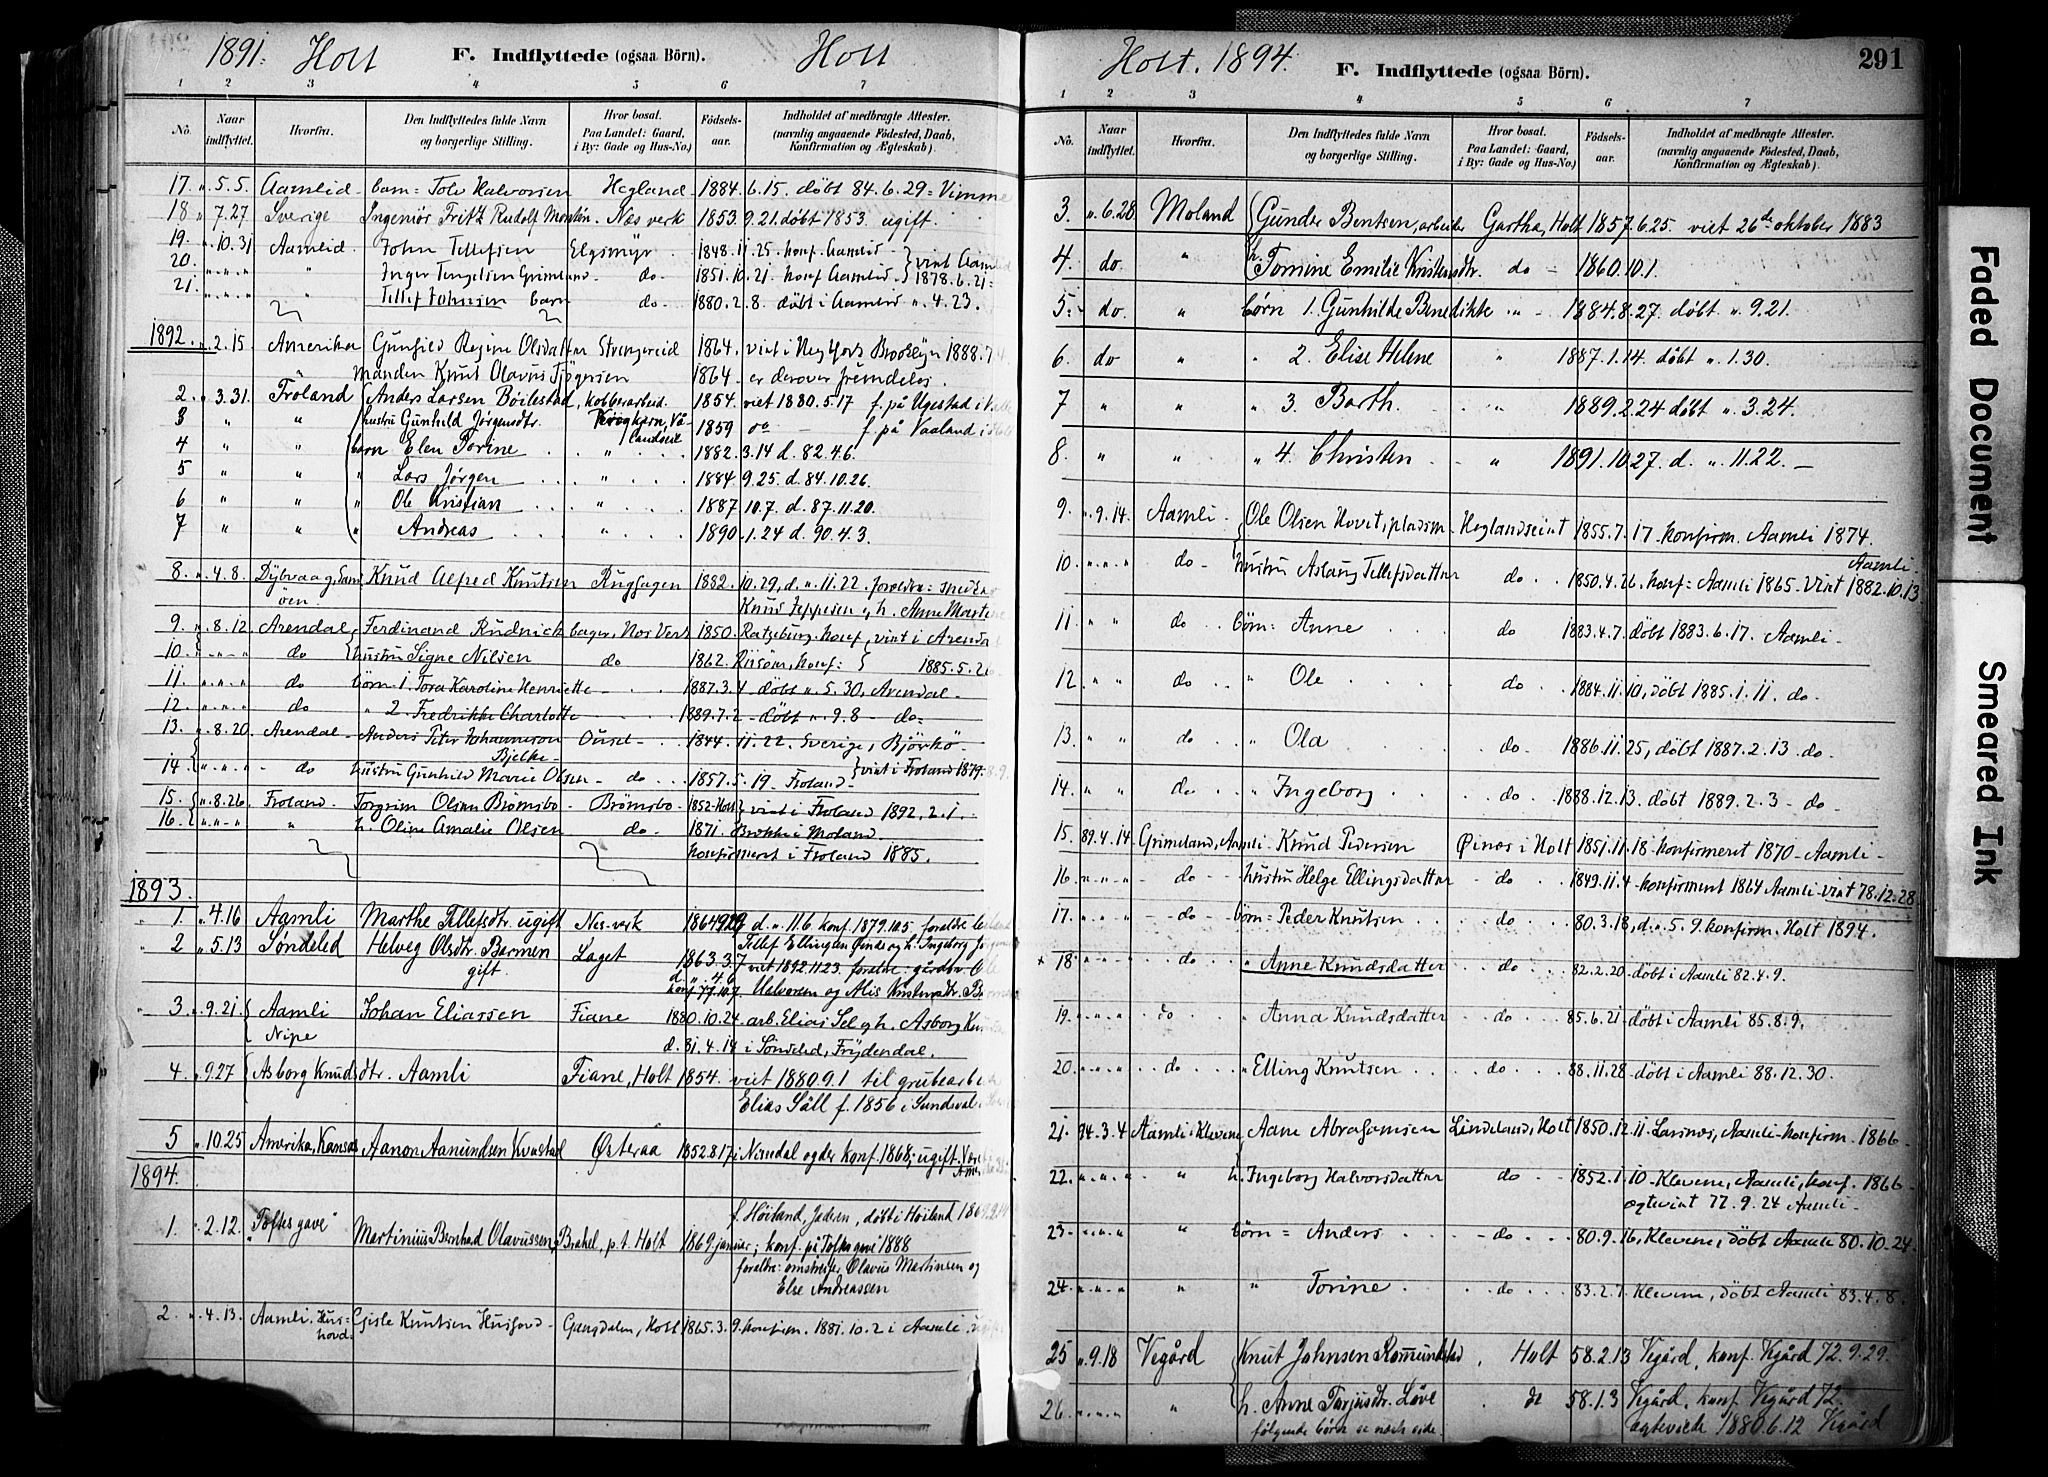 1891. Holt F. Indflyttede (ogsaa Börn). Holt
1 2 3 4 5 6 7
No. Naar indflyttet. Hvorfra. Den Indflyttedes fulde Navn og borgerlige Stilling. Hvor bosat. Paa Landet: Gaard, i By: Gade og Hus-No.) Födsels-aar. Indholdet af medbragte Attester. (navnlig angaaende Födested, Daab, Konfirmation og Ægteskab).
17. " 5.5. Aamlid barn= Tolv Halvorsen Hegland 1884.6.15. døbt 84.6.29= Vimme
18 " 7.27 Sverige Ingeniør Fritz Rudolf Nes verk 1853.9.21. døbt 1853 ugift.
19. " 10.31 Aamlid John Tellefsen Elgsmyr 1848.11.25. konf. Aamlid
20. " " " " Inger do. 1851.10.21. konf Aamlid } viet Aamlid 1878.6.21=
21. " " " " Tellef Johnsen barn do. 1880.2.8. døbt i Aamlid ". 4.23.
1892. " 2.15. Amerika Gunhild Regine Olsdatter Strengereid 1864. viet i Brooklyn 1888.7.
Manden Knut Olavus 1864. er derover fremdeles.
2. " 3.31. Froland Anders Larsen Böilestad, kobberarbeid. 1854. viet 1880.5.17 f. på Ugestad i
3 " " hustru Gunhild Jørgensdtr. 1859 do - f. på Vaaland i
4 " " børn Elen Torine . . " . . 1882. 3.14 d. 82.4.6.
5 " " Lars Jørgen . . " . . 1884 9.25. d. 84.10.26.
6 " " Ole Kristian " 1887 10.7. d. 87.11.20.
7 " " Andreas . . " . . 1890 .1.24 d. 90.4.3.
8. " 4.8. Dybvaag, Sandöen. Knud Alfred Knutsen Ruggagen 1882. 10.29, d. ". 11.22. foreldre:
Knud Jeppesen og h. Anne
9. " 8.12. Arendal, Ferdinand Rudnick bager, Nes Verk 1850. Ratzeburg. konf, viet i Arendal
10. " " " do hustru Signe Nilsen do 1862. Risöer, konf= } 1885.5.
11. " " " do børn 1. Tora Karoline Henriette - . . 1887.3.4 - døbt ". 5.30, Arendal -
12. " " " do " 2. Fredrikke Charlotte - . . 1889.7.2 - døbt ". 9.8 - do=
13. " 8.20. Arendal - Anders Peter Johannesen Bjelke - Ousel - . . 1844. 11.22. Sverige, Björkö -
14 " " " - do hustru Gunhild Marie Olsen - do . . 1857.5.19 - Froland } viet i Froland 1879.8.9.
15. " 8.26. Froland. Torgrim Olsen Brömsbo - Brömsbo - 1852 Holt } viet i Froland 1892.2.1.
16. " " " " h. Oline Amalie Olsen do - 1871. Brække i Moland.
konfirmeret i Froland 1885.
1893.
1. " 4.16 Aamli Marthe Tellefsdtr. ugift Nes verk 1864 d. ". 11.6 konf. 1879.10.5. foreldre
Tellef Ellingsen og h. Ingeborg
2 " 5.13 Søndeled Helveg Olsdtr. Barmen gift. Laget 1863.3.7 viet 1892.11.23. foreldre: gårdbr.
Halvorsen og Alis Kristensdtr.
3 " 9.21 Aamli Nipe Johan Eliassen Fiane 1880.10.24. arb. Elias Sel og h. Asborg
d. 81.4.14 i Søndeled, Frydendal.
4 " 9.27 Asborg Knudsdtr. Aamli Fiane, Holt 1854. viet 1880.9.1 til
Elias Säll f. 1856 i Sundsval.
5 " 10.25 Amerika, Kansas Aanon Aanundsen Østeraa 1852.8.17 i Nirndal og der konf. 1868; ugift.
1894.
f. Höiland, Jæderen, døbt i Höiland
1. " 2.12. "Toftes gave" Martinius Bernhard Olavussen Brakel, p.t. Holt 1869 januar; konf. på Toftes gave 1888
foreldre: omstreifer Olavus Martinsen og
Else Andreassen
2. " 4.13. Aamli, Gjeste Knutsen Gangdalen, Holt 1865.3.9. konfirm. 1881.10.2 i Aamli.
Holt. 1894. F. Indflyttede (ogsaa Börn). 291
1 2 3 4 5 6 7
No. Naar indflyttet. Hvorfra. Den Indflyttedes fulde Navn og borgerlige Stilling. Hvor bosat. Paa Landet: Gaard, i By: Gade og Hus-No.) Födsels-aar. Indholdet af medbragte Attester. (navnlig angaaende Födested, Daab, Konfirmation og Ægteskab).
3. " 6.28 Moland Gunder Bentsen, arbeider Gartha, Holt 1857.6.25. viet 26de oktober 1883
4. do. " h. Tomine Emilie Kristensdtr. do - 1860.10.1.
5. - do. " børn 1. Gunhilde Benedikte " - 1884.8.27. døbt ". 9.21.
6. do " " 2. Elise Helene " 1887.1.14. døbt ". 1.30.
7 " " " 3. Barth. . " 1889.2.24 døbt ". 3.24.
8. " " " 4. Christen . . " 1891.10.27. d. ". 11.22. -
9. " 9.14. Aamli - Ole Olsen Hovet, pladsm - Heglandseiet 1855.7.17 - konfirm. Aamli 1874.
10. " " " do - hustru Aslaug Tellefsdatter do . 1850.4.26. konf= Aamli 1865. Viet 1882.10.13. Aamli -
11. " " do børn= Anne do 1883.4.7. døbt 1883.6.17. Aamli -
12. " " do . " Ole do . . 1884.11.10, døbt 1885.1.11. do.
13. " " do " Ola do - 1886.11.25, døbt 1887.2.13 - do -
14. " " do " Ingeborg . . do . 1888.12.13. døbt 1889.2.3 - do -
15. 89.4.14. Grimeland, Aamli - Knud Pedersen Øinæs i Holt 1851.11.18 - konfirmeret 1870 - Aamli -
16. " " " - do - hustru Helge Ellingsdatter - do . . 1849.11.4 - konfirmeret 1864 Aamli - viet 78.12.28.
17. " " " - do - børn= Peder Knutsen . . do . . 80.3.18, d. ". 5.9. konfirm. Holt 1894.
+ 18. " " " . do . " Anne Knudsdatter . . do . . 82.2.20 - døbt i Aamli 82.4.9.
19. " " " do . . Anna Knudsdatter . do . . 85.6.21 - døbt i Aamli 85.8.9.
20. " " " . do . . " Elling Knutsen . . do . . 88.11.28 døbt i Aamli 88.12.30.
21. 94.3.4 Aamli: Klevene Aane Abrahamsen Lindeland, Holt 1850.12.11. Aamli - konfirm. 1866 -
22. " " " " h. Ingeborg Halvorsdatter do - 1852.1.10 - Klevene, Aamli, konf. 1866 -
og viet 77.9.24 Aamli -
23. " " " " børn= Anders . . do . 80.9.16, Klevene, døbt Aamli 80.10.24.
24. " " " " " Torine . . do . . 83.2.7. Klevene, døbt Aamli 83.4.8.
25 " 9.18 Vegård Knut Johnsen , Holt 58.2.13 Vegård, konf. Vegård 72.9.29.
26. " " " " h. Anne Tarjeisdtr. Løve . do 58.1.3 Vegård, konf. Vegård 72.
følgende børn se næste side. egteviede 1880.6.12 Vegård
Faded Document
Smeared Ink